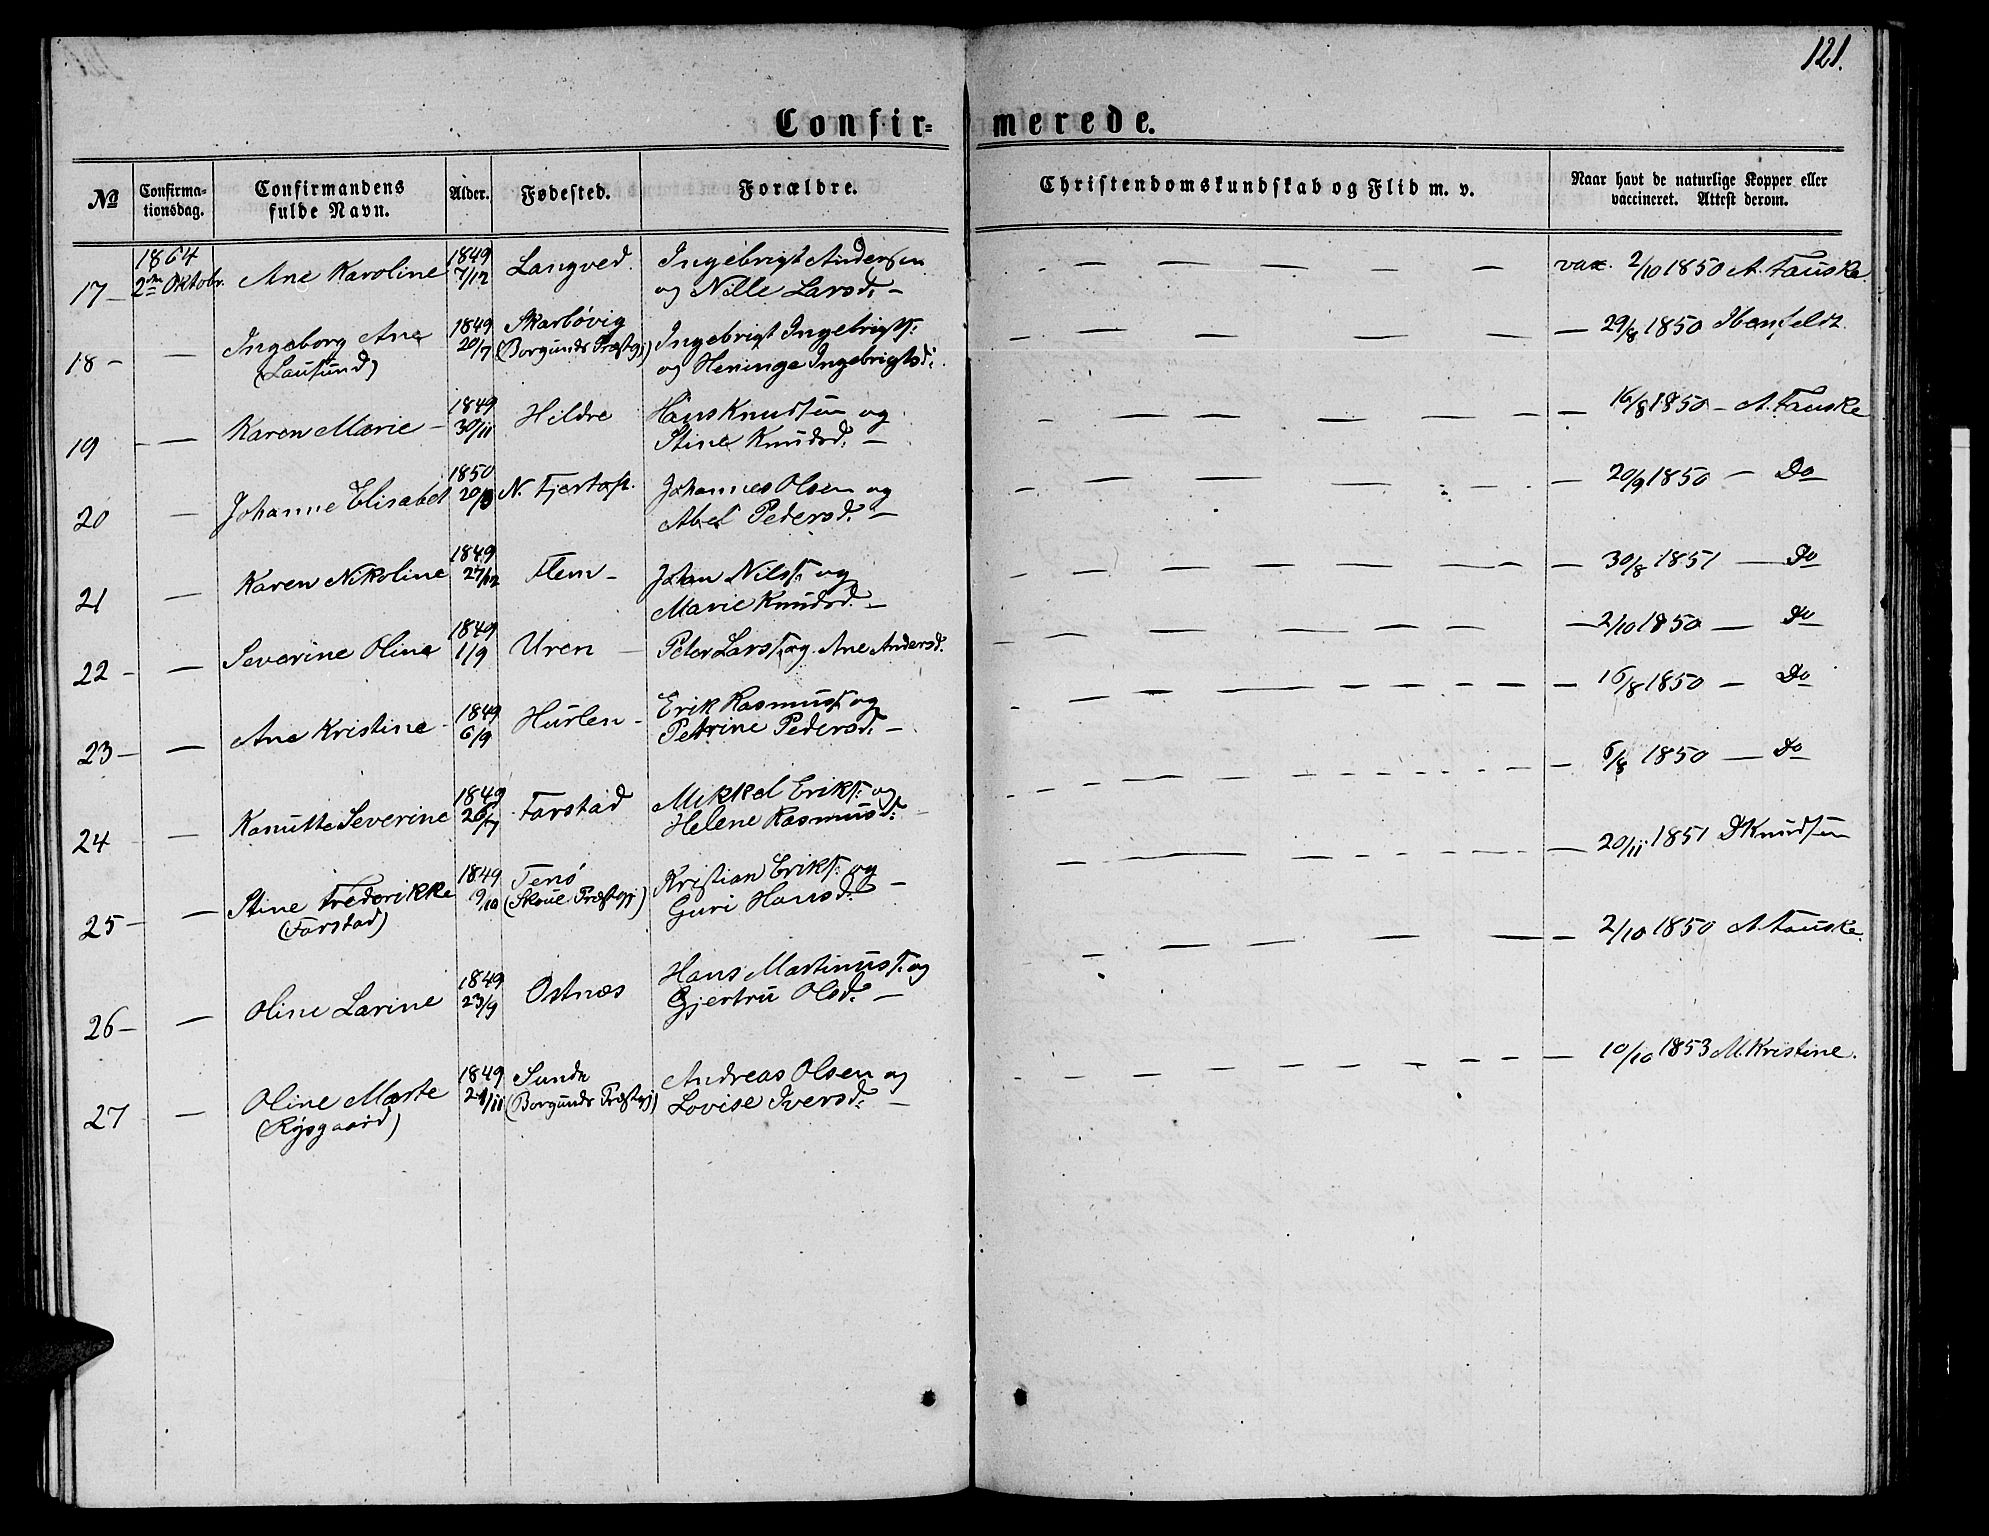 121.
Confir= merede.
No Confirma-tionsdag. Confirmandens fulde Navn. Alder. Fødested. Forældre. Christendomskundskab og Flid m. v. Naar havt de naturlige Kopper eller vaccineret. Attest derom.
1864 1849
17 – 2den Oktobr. Ane Karoline 7/12 Langved. Ingebrigt Andersen — — — — — vax. 2/10 1850 A. Fauske.
og Nille Larsd. –
18 – — Ingeborg Ane 1849 Skarbøvig Ingebrigt Ingebrigts. — — — — — 29/8 1850
(Lausund) 20/7 (Borgunds Præstgj) og Heninge Ingebrigtsd.
19 — Karen Marie – 1849 Hildre Hans Knudsen og — — — — — 16/8 1850 – A. Fauske
30/11 Stine Knudsd. –
20 — Johanne Elisabet 1850 N. Fjertoft. Johannes Olsen og — — — — — 20/9 1850 — Do
Abel Pedersd. –
21 — Karen Nikoline 1849 Flem – Johan Nilss. og — — — — — 30/8 1851 — Do
27/12 Marie Knudsd. –
22 – — Severine Oline 1849 Uren — Peter Lars. og Ane Andersd. — — — — — 2/10 1850 — Do
1/9
23 – — Ane Kristine – 1849 Hurlen – Erik Rasmuss. og — — — — — 16/8 1850 — Do
6/9 Petrine Pedersd. –
24 — Kanutte Severine 1849 Farstad Mikkel Eriks. og — — — — — 6/8 1850 — Do
26/7 Helene Rasmusd. –
25 – — Stine Frederikke 1849 Tenø Kristian Eriks. og — — — — — 20/11 1851 D Knudsen
(Farstad) 9/10 (Skoue Præstgj) Guri Hansd. –
26 – — Oline Larine 1849 Ostnæs Hans Martinuss. og — — — — — 2/10 1850 A. Fauske.
23/9 Gjertru Olsd. –
27 — Oline Marte 1849 Sunde Andreas Olsen og — — — — — 10/10 1853 M. Kristine.
(Rysgaard) (Borgunds Præstgj) Lovise Iversd. –